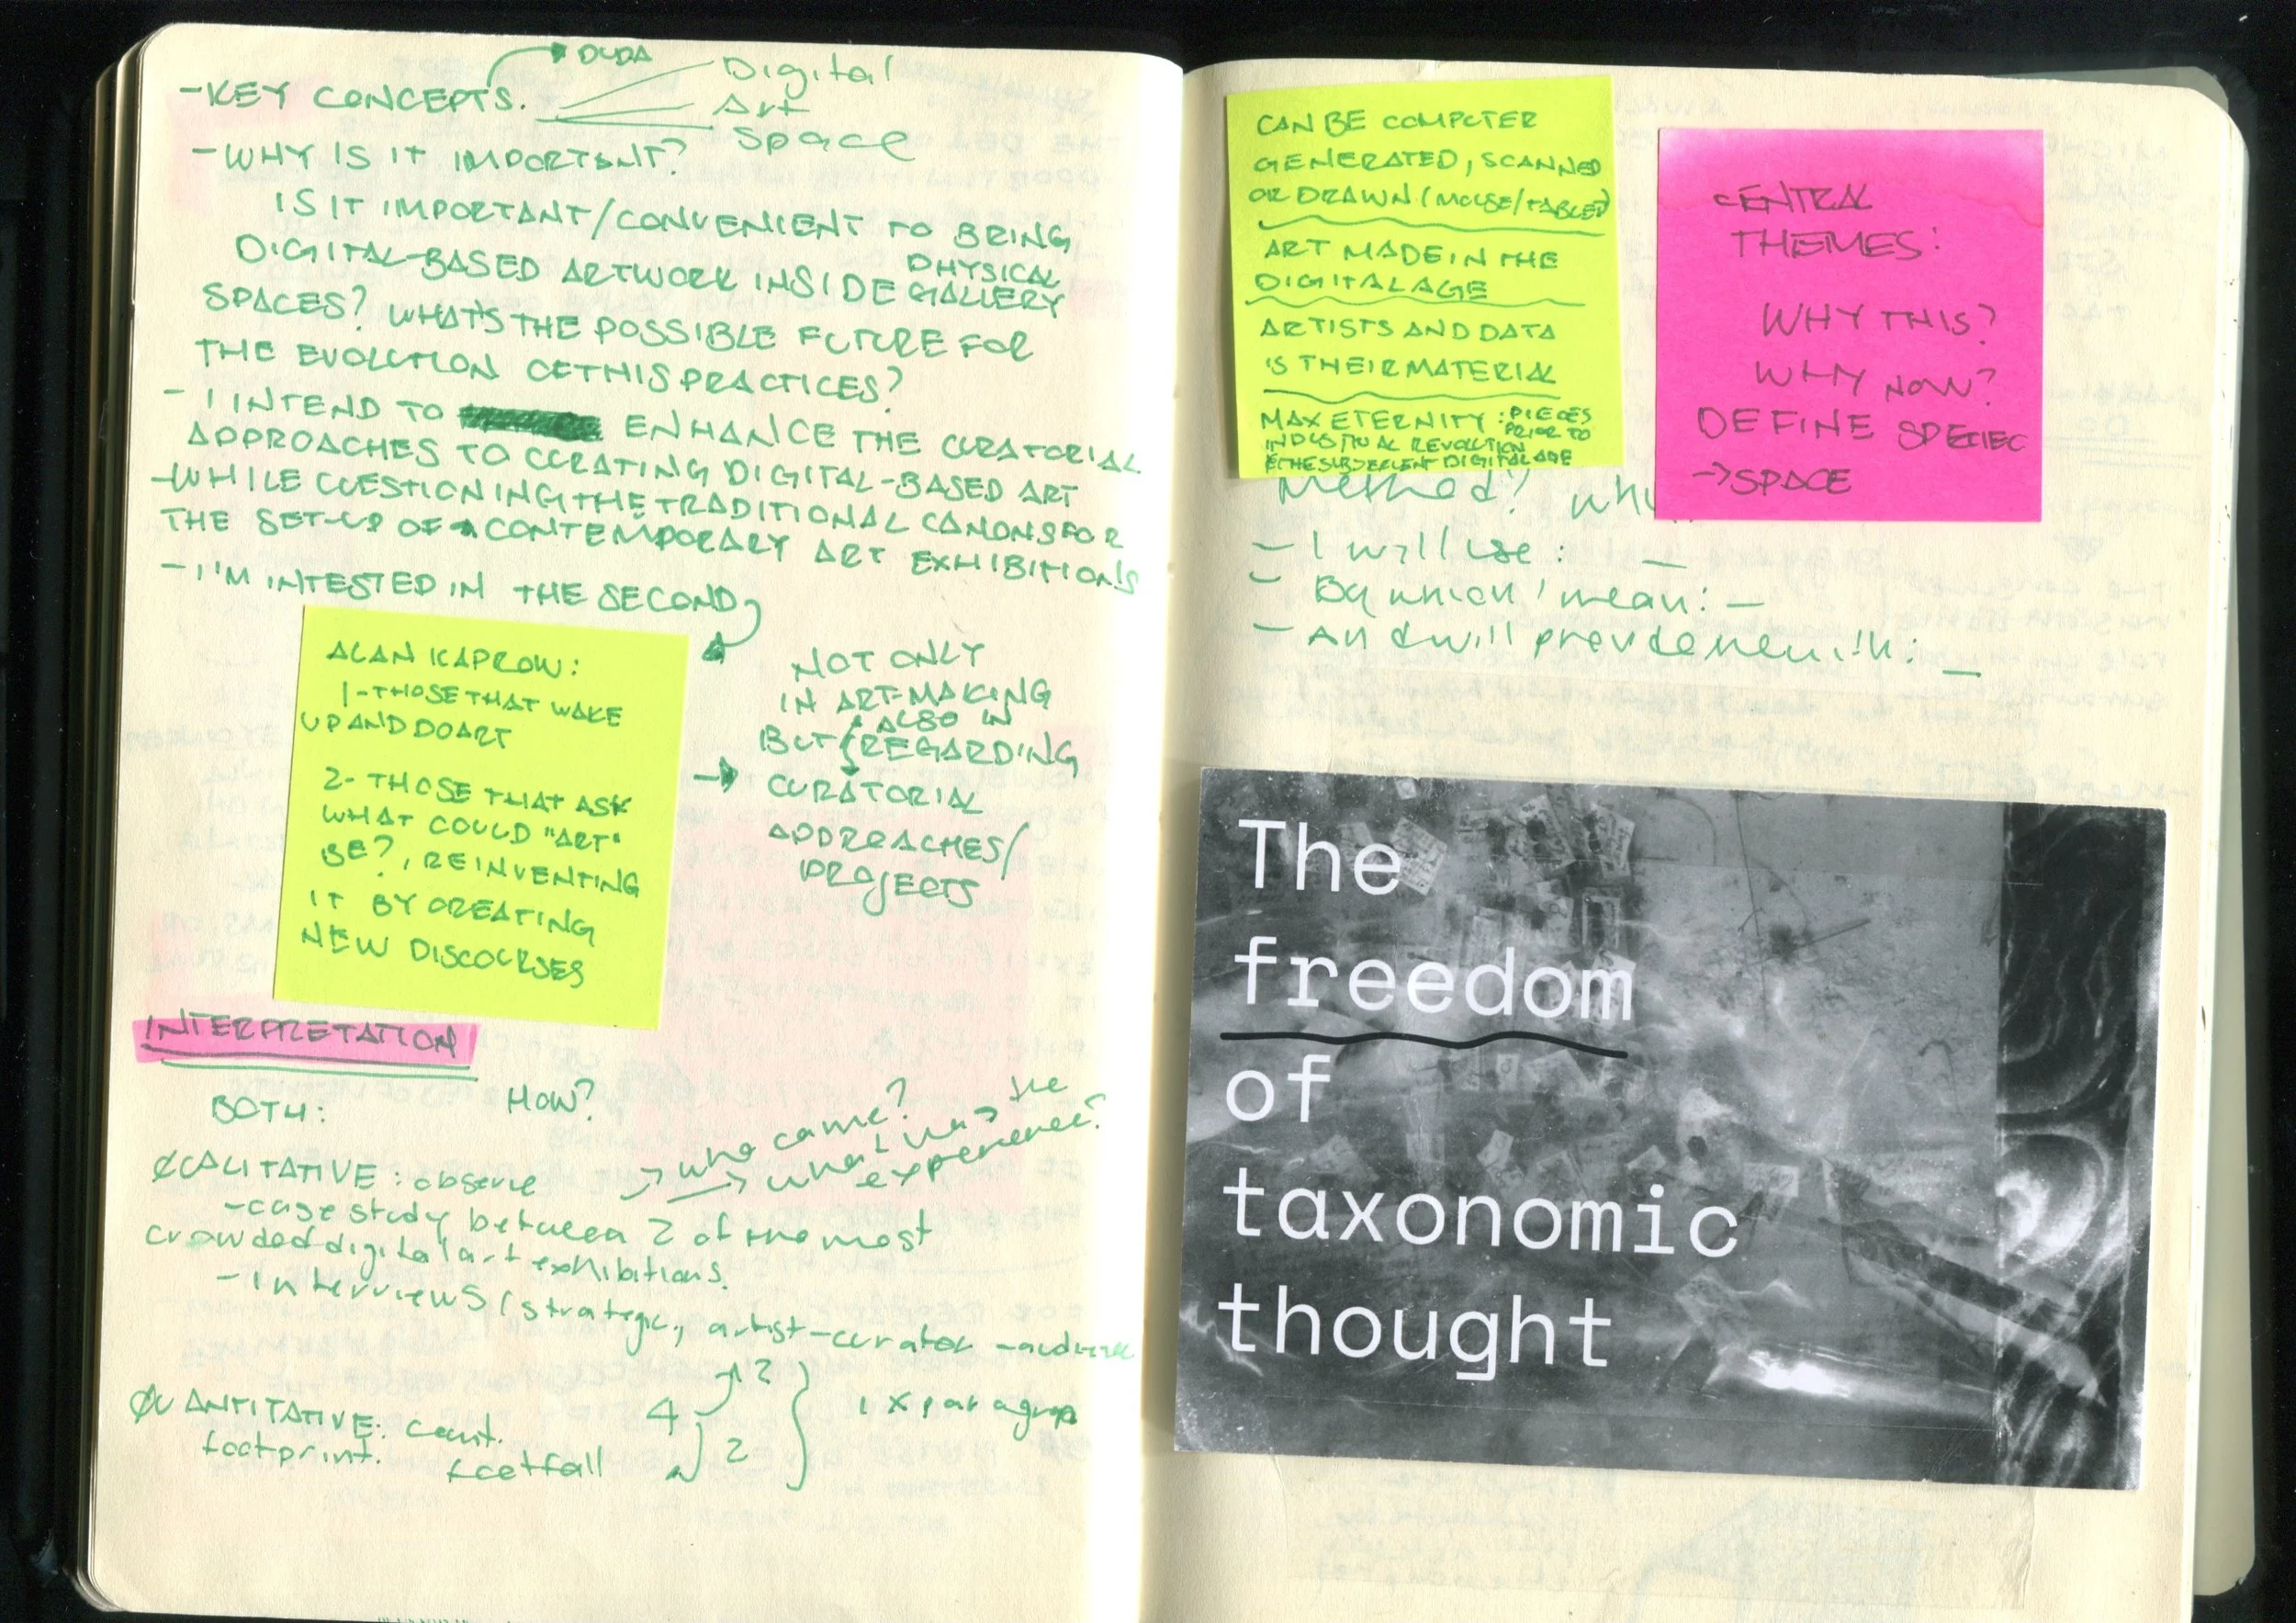 DUDA
- KEY CONCEPTS.
Digital
Art
Space
- WHY IS IT IMPORTANT?
IS IT IMPORTANT/CONVENIENT TO BRING
DIGITAL-BASED ARTWORK INSIDE GALLERY
PHYSICAL
SPACES? WHAT'S THE POSSIBLE FUTURE FOR
THE EVOLUTION OF THIS PRACTICES?
- I INTEND TO ENHANCE THE CURATORIAL
APPROACHES TO CURATING DIGITAL-BASED ART
- WHILE QUESTIONING THE TRADITIONAL CANONS FOR
THE SET-UP OF CONTEMPORARY ART EXHIBITIONS
- I'M INTESTED IN THE SECOND
ALAN KAPROW:
1 - THOSE THAT WAKE
UP AND DO ART
2 - THOSE THAT ASK
WHAT COULD "ART"
BE?, REINVENTING
IT BY CREATING
NEW DISCOURSES
→ NOT ONLY
IN ART-MAKING
BUT ALSO IN
REGARDING
CURATORIAL
APPROACHES/
PROJECTS
INTERPRETATION
BOTH:
HOW?
QUALITATIVE: observe
→ who came?
→ what was the
experience?
- case study between 2 of the most
crowded digital art exhibitions.
- Interviews (strategic, artist-curator -audience
QUANTITATIVE: Count.
footprint. footfall
4
2
2
1 x paragraph
CAN BE COMPUTER
GENERATED, SCANNED
OR DRAWN (MOUSE/TABLET)
ART MADE IN THE
DIGITAL AGE
ARTISTS AND DATA
IS THEIR MATERIAL
MAX ETERNITY: PIECES
PRIOR TO
INDUSTRIAL REVOLUTION
& THE SUBSEQUENT DIGITAL AGE
CENTRAL
THEMES:
WHY THIS?
WHY NOW?
DEFINE
→ SPACE
Method? Why
- I will use: _
- By which I mean: _
- And will
The
freedom
of
taxonomic
thought